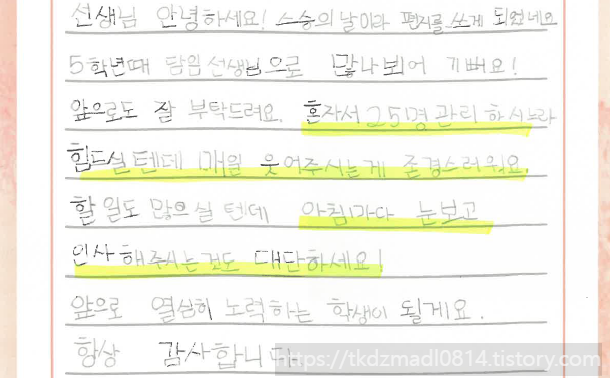 선생님 안녕하세요! 스승의 날이라 편지를 쓰게 되었네요
5학년때 담임선생님으로 만나뵈어 기뻐요!
앞으로도 잘 부탁드려요. 혼자서 25명 관리 하시느라
힘드실텐데 매일 웃어주시는게 존경스러워요.
할 일도 많으실 텐데 아침마다 눈보고
인사해주시는것도 대단하세요!
앞으로 열심히 노력하는 학생이 될게요.
항상 감사합니다
https://tkdzmadl0814.tistory.com